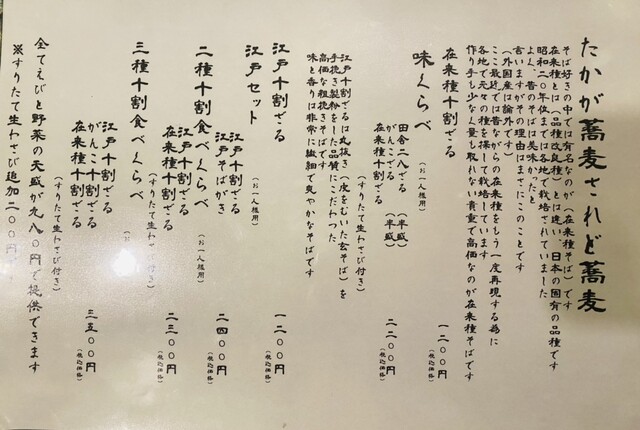 たかが蕎麦されど蕎麦
そば好きの中では有名なのが（在来種そば）です
在来種とは（品種改良種）とは違い、日本の固有の品種です
昭和二〇年位までは各地で栽培されていました
よく、昔のそばは美味かったと
言いますがその理由はまさにこのことです
（外国産は論外です）
ここ最近では昔ながらの在来種をもう一度再現する為に
各地で元々の種を探して栽培しています
作り手も少なく量も取れない貴重で高価なのが在来種そばです
在来種十割ざる
一二〇〇円
（税込価格）
味くらべ
（お一人様用）
田舎二八ざる（半盛）
がんこざる（半盛）
在来種十割ざる
（すりたて生わさび付き）
二二〇〇円
（税込価格）
江戸十割ざるは丸抜き（皮をむいた玄そば）を
手挽き製粉をした品質にこだわった
高価な粗挽きそばです
味と香りは非常に繊細で爽やかなそばです
江戸十割ざる
一二〇〇円
（税込価格）
江戸セット
（お一人様用）
江戸十割ざる
江戸そばがき
二四〇〇円
（税込価格）
二種十割食べくらべ
（お一人様用）
江戸十割ざる
在来種十割ざる
（すりたて生わさび付き）
二三〇〇円
（税込価格）
三種十割食べくらべ
（お一人様用）
江戸十割ざる
がんこ十割ざる
在来種十割ざる
（すりたて生わさび付き）
三五〇〇円
（税込価格）
全てえびと野菜の天盛が九八〇円で提供できます
※すりたて生わさび追加二〇〇円